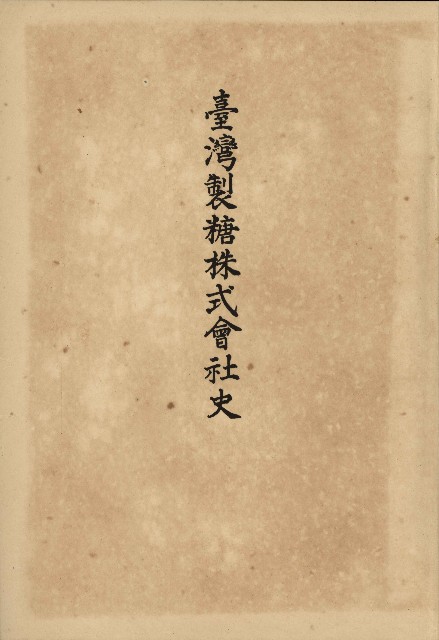 臺灣製糖株式會社史